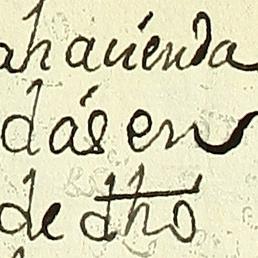 ahacienda
dás en
de dho